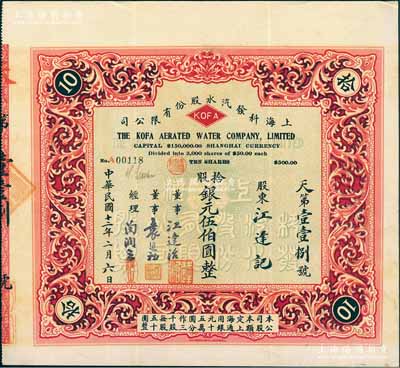 10
拾
上海科發汽水股份有限公司
KOFA
THE KOFA AERATED WATER COMPANY, LIMITED
CAPITAL $150,000.00 SHANGHAI CURRENCY
Divided into 3,000 shares of $50.00 each
No. 00118
TEN SHARES
$500.00
天第壹壹捌號
股東江達記
拾股
銀元伍佰圓整
董事
董事
經理
中華民國十二年二月六日
拾
10
本公司股本額定上海通用銀元十五萬圓分作三千股每股五十圓